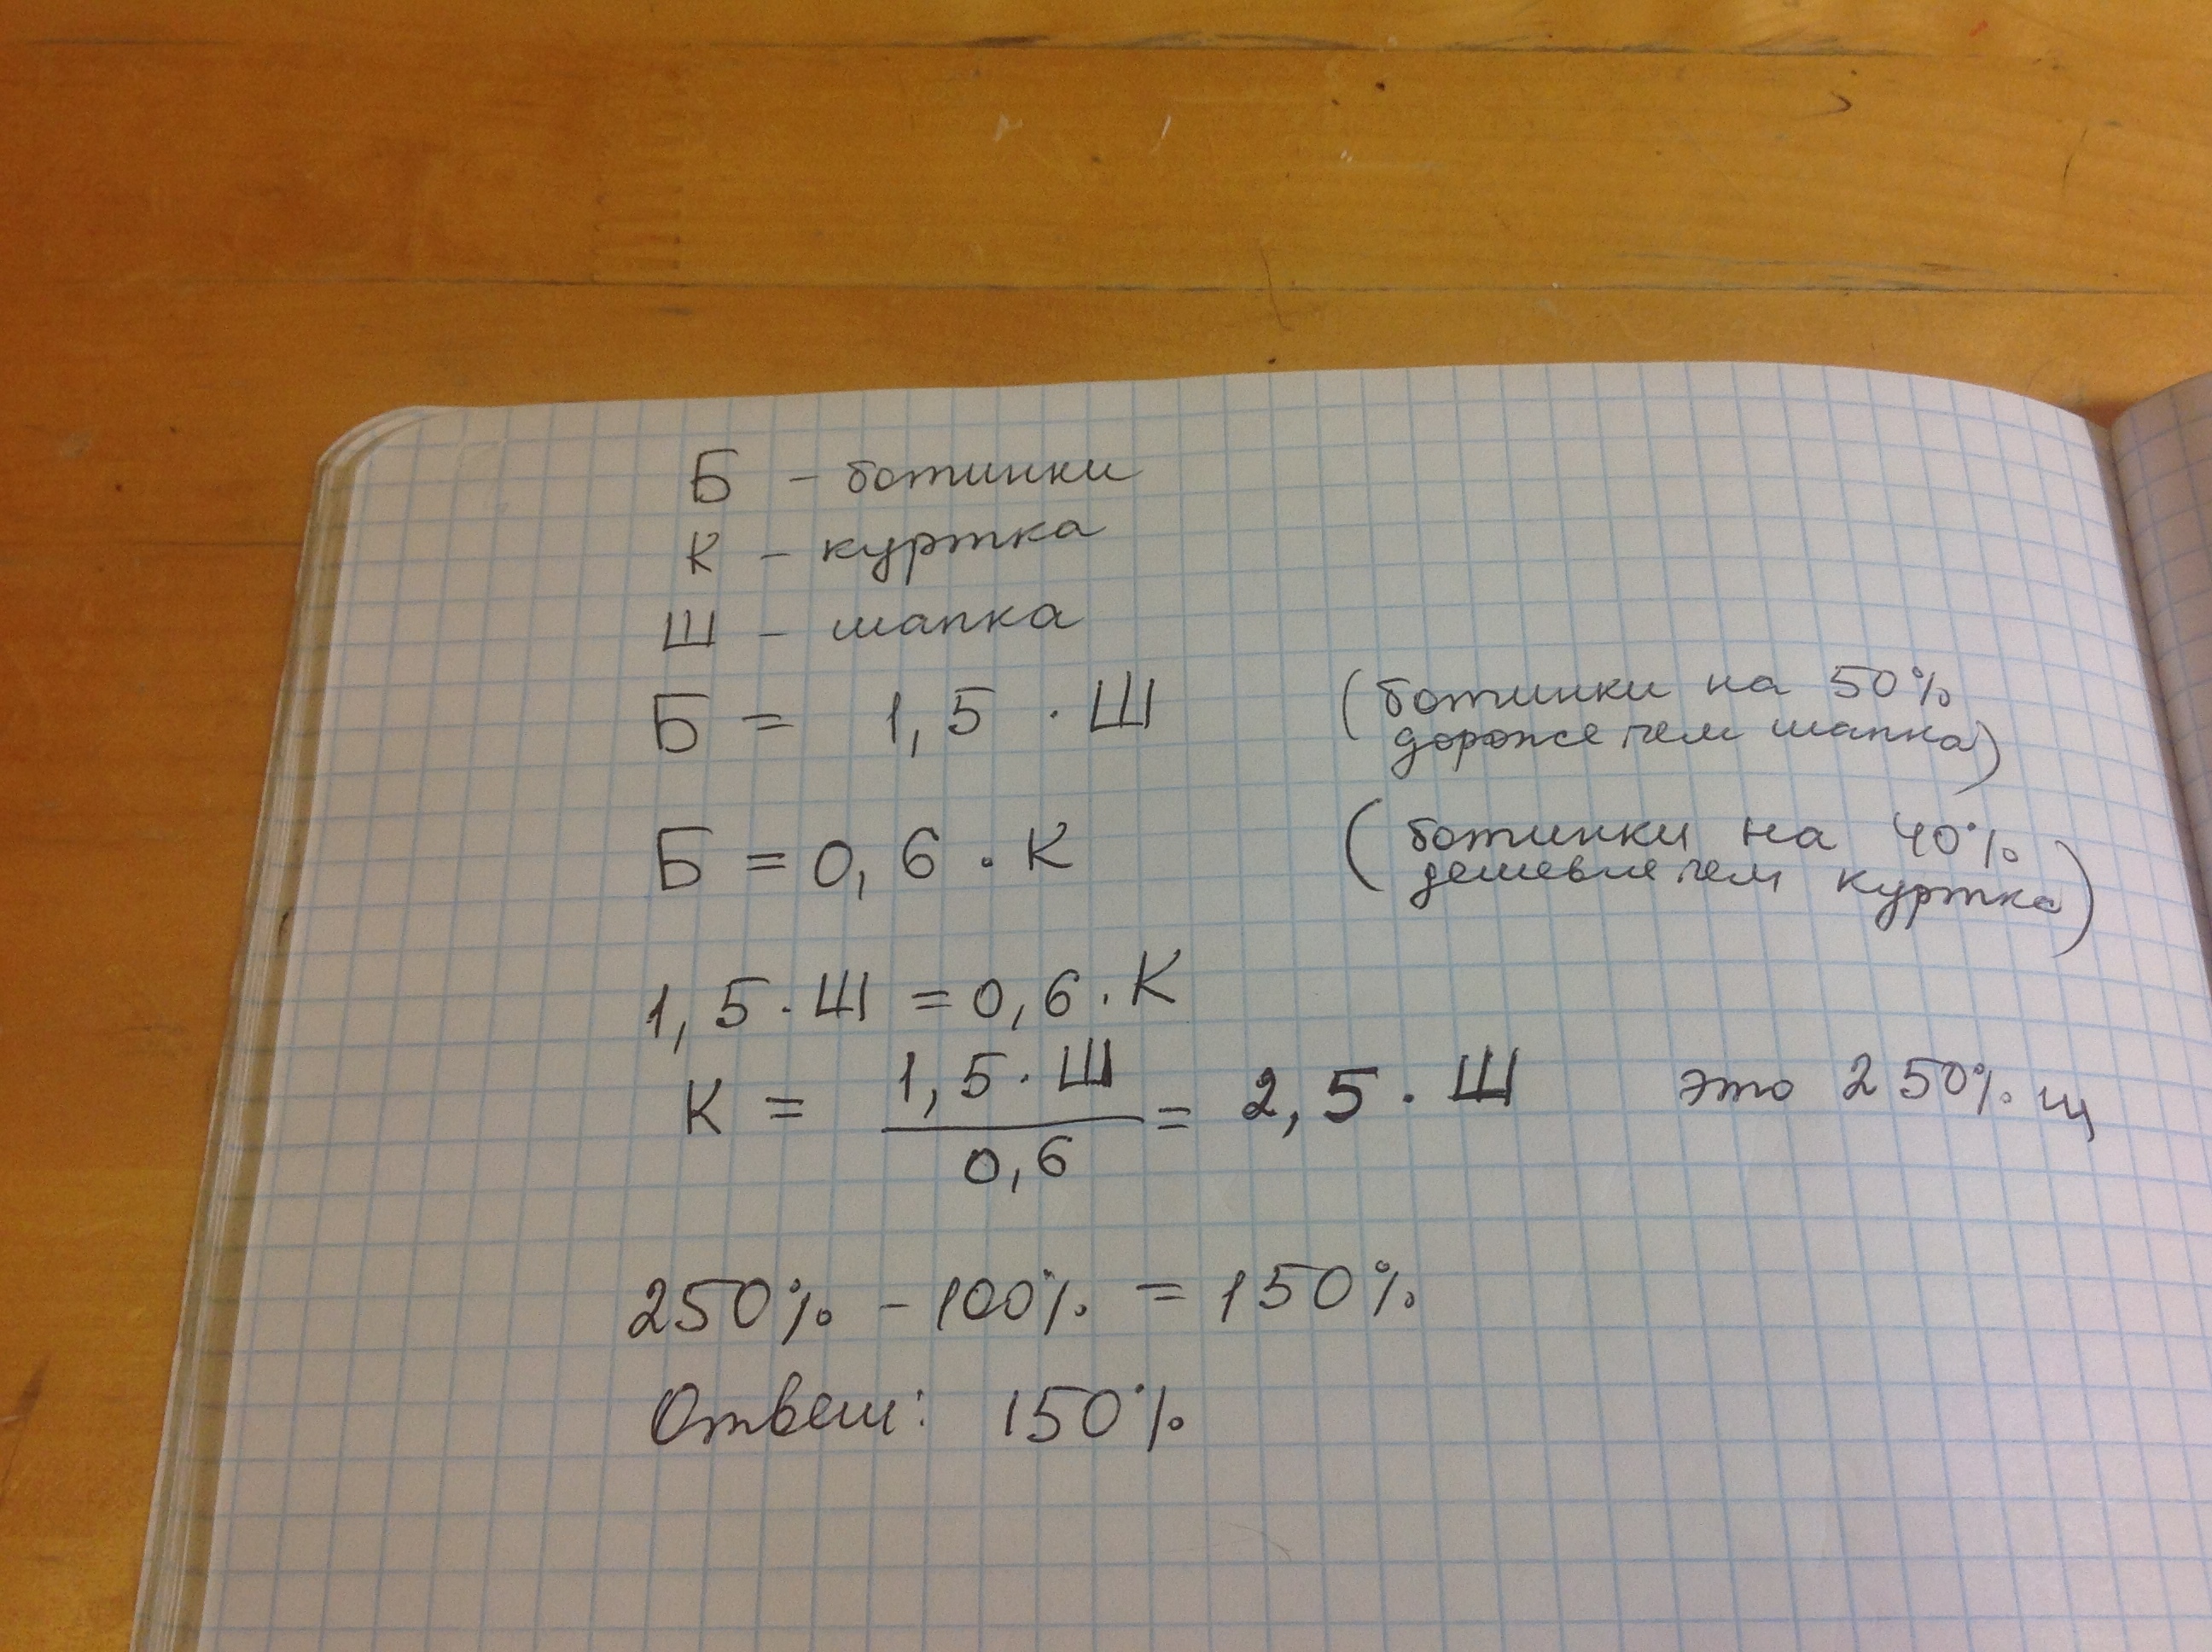 Б – ботинки
К – куртка
Ш – шапка
Б = 1,5 · Ш (ботинки на 50%
дороже чем шапка)
Б = 0,6 · К (ботинки на 40%
дешевле чем куртка)
1,5 · Ш = 0,6 · К
К = 1,5 · Ш / 0,6 = 2,5 · Ш это 250% ш
250% – 100% = 150%
Ответ: 150%